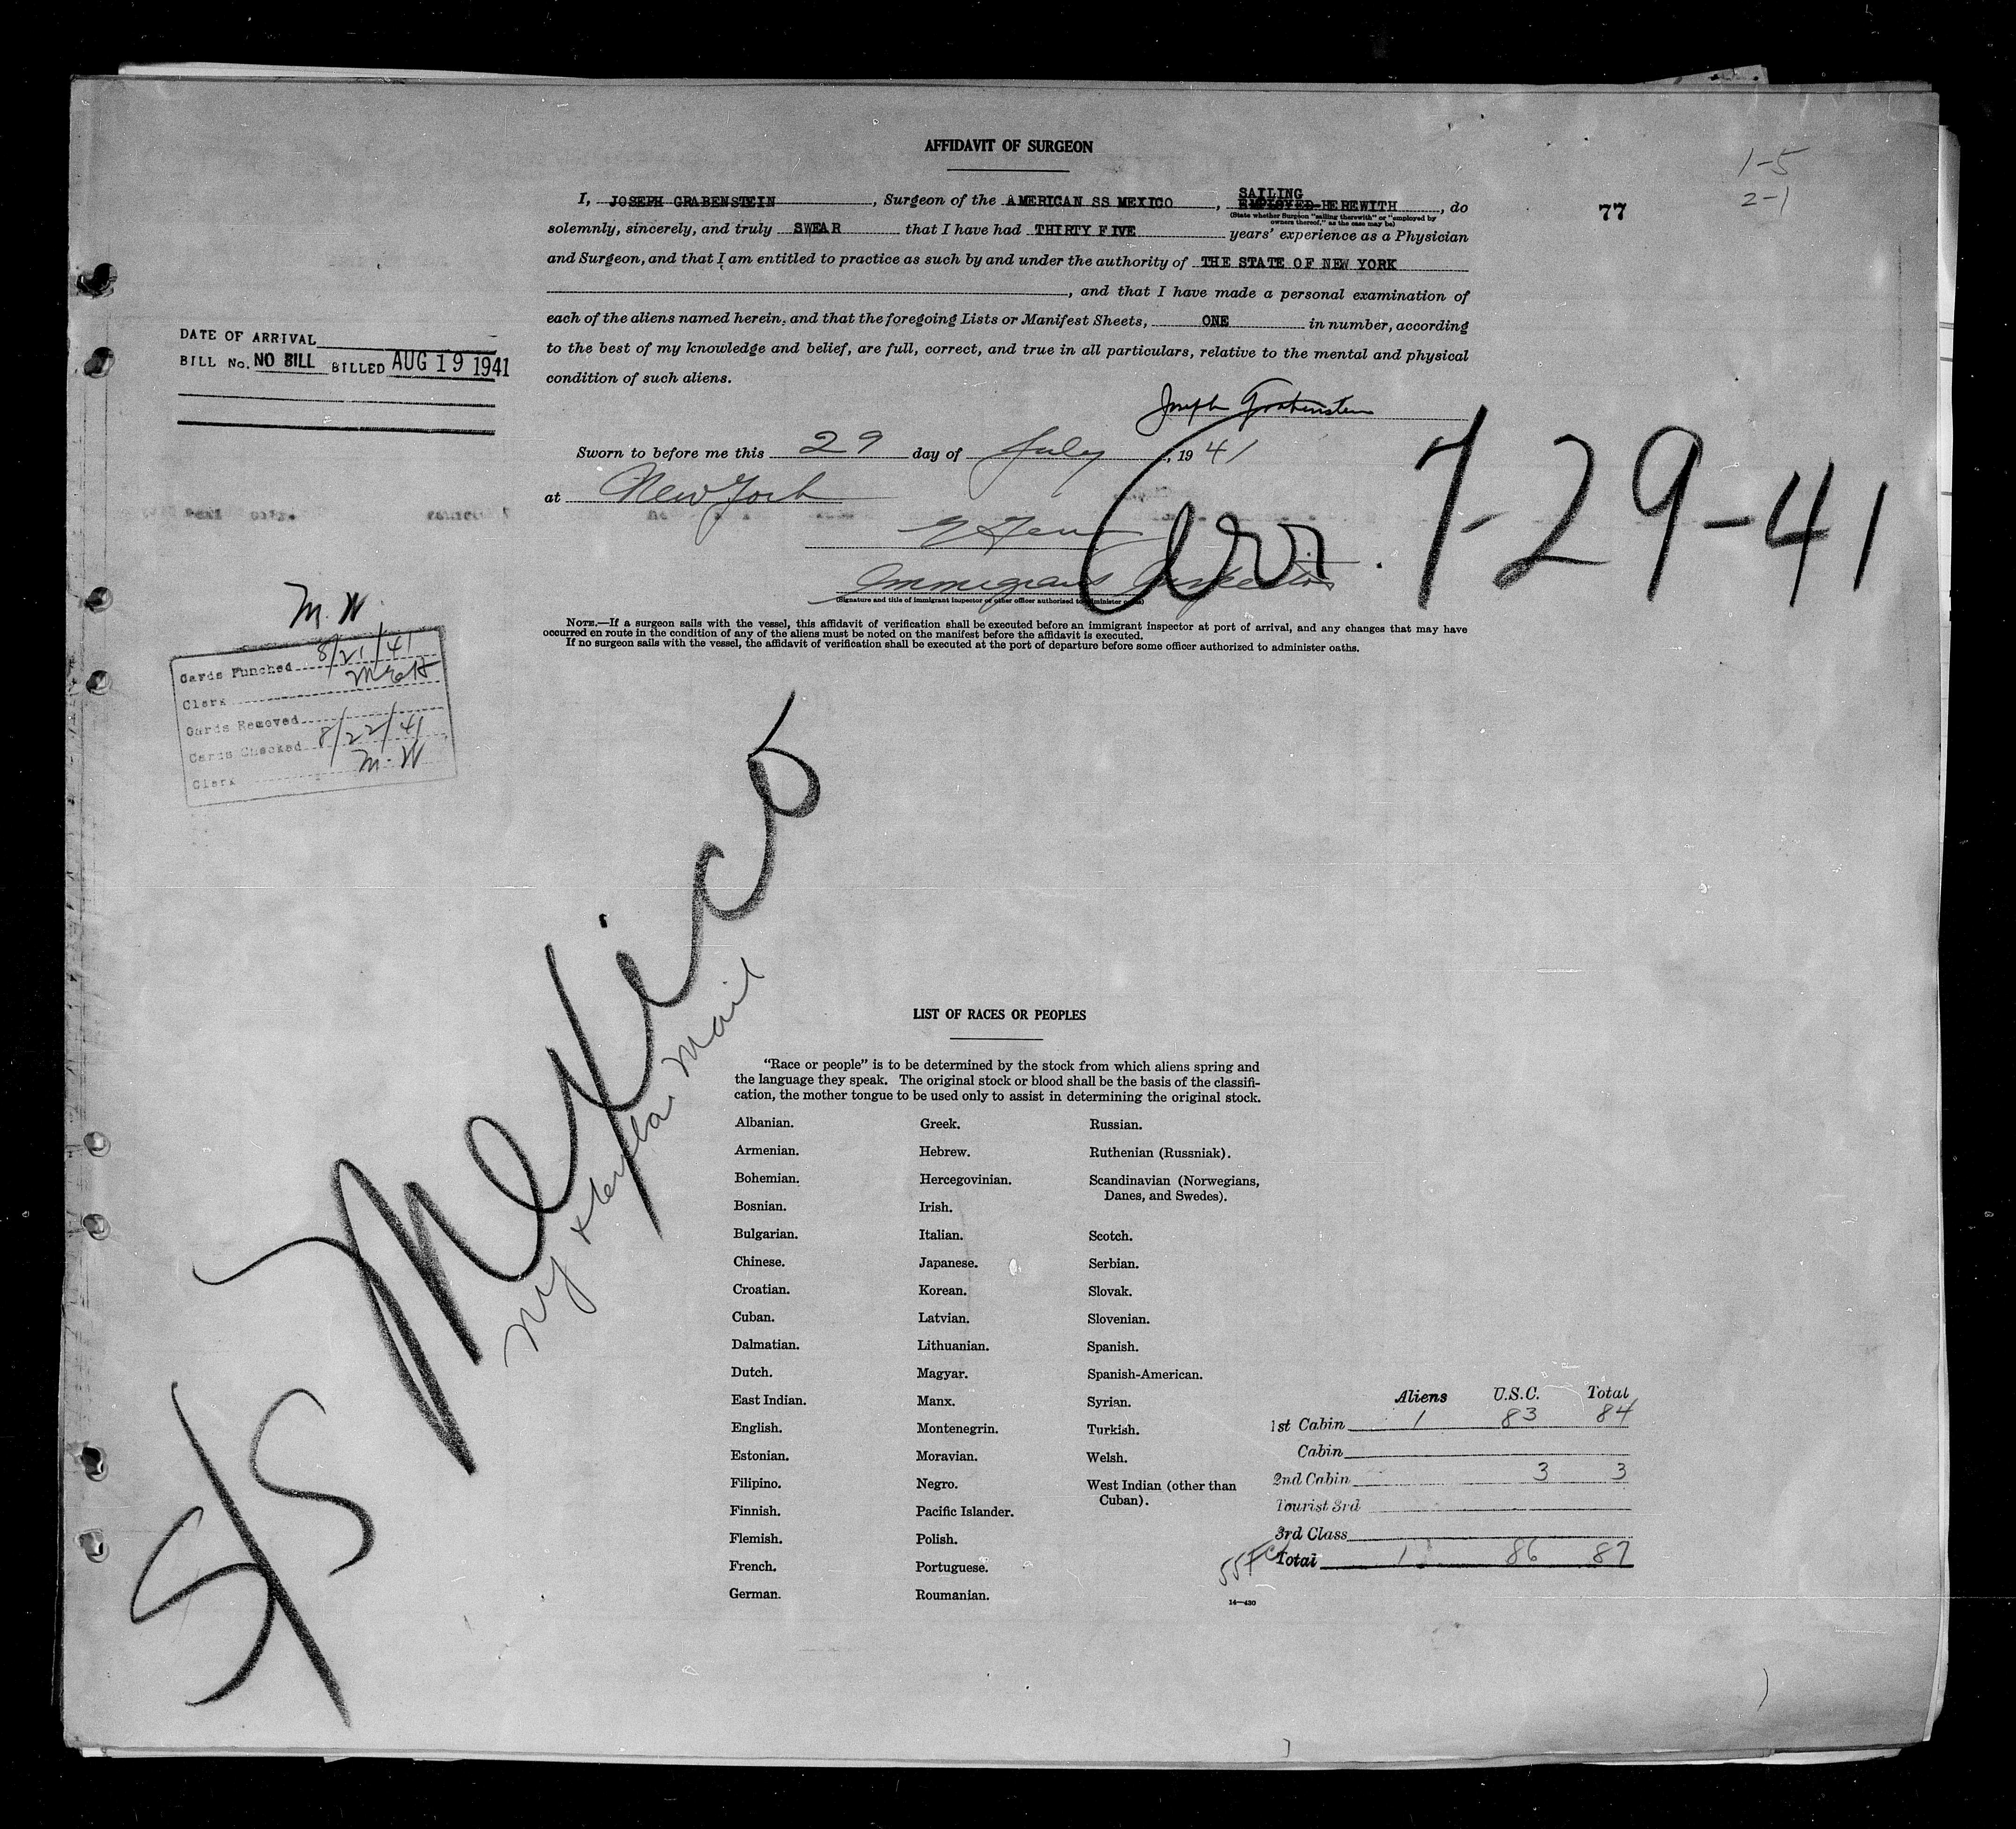 AFFIDAVIT OF SURGEON
1-5
2-1
77
SAILING
I, JOSEPH GRABENSTEIN, Surgeon of the AMERICAN SS MEXICO, EMPLOYED HEREWITH, do
(State whether Surgeon "sailing therewith" or "employed by
owners thereof," as the case may be)
solemnly, sincerely, and truly SWEAR that I have had THIRTY FIVE years' experience as a Physician
and Surgeon, and that I am entitled to practice as such by and under the authority of THE STATE OF NEW YORK
, and that I have made a personal examination of
each of the aliens named herein, and that the foregoing Lists or Manifest Sheets, ONE in number, according
to the best of my knowledge and belief, are full, correct, and true in all particulars, relative to the mental and physical
condition of such aliens.
DATE OF ARRIVAL
BILL No. NO BILL BILLED AUG 19 1941
Joseph Grabenstein
Sworn to before me this 29 day of July, 19 41
at New York
Arr. 7-29-41
Immigrant Inspector
(Signature and title of immigrant inspector or other officer authorized to administer oaths)
NOTE.—If a surgeon sails with the vessel, this affidavit of verification shall be executed before an immigrant inspector at port of arrival, and any changes that may have
occurred en route in the condition of any of the aliens must be noted on the manifest before the affidavit is executed.
If no surgeon sails with the vessel, the affidavit of verification shall be executed at the port of departure before some officer authorized to administer oaths.
M.W.
Cards Punched 8/21/41
Clerk
Cards Removed
Cards Checked 8/22/41
Clerk M.W
S/S Mexico
NY & Cuba Mail
LIST OF RACES OR PEOPLES
"Race or people" is to be determined by the stock from which aliens spring and
the language they speak. The original stock or blood shall be the basis of the classifi-
cation, the mother tongue to be used only to assist in determining the original stock.
Albanian.
Armenian.
Bohemian.
Bosnian.
Bulgarian.
Chinese.
Croatian.
Cuban.
Dalmatian.
Dutch.
East Indian.
English.
Estonian.
Filipino.
Finnish.
Flemish.
French.
German.
Greek.
Hebrew.
Hercegovinian.
Irish.
Italian.
Japanese.
Korean.
Latvian.
Lithuanian.
Magyar.
Manx.
Montenegrin.
Moravian.
Negro.
Pacific Islander.
Polish.
Portuguese.
Roumanian.
Russian.
Ruthenian (Russniak).
Scandinavian (Norwegians,
Danes, and Swedes).
Scotch.
Serbian.
Slovak.
Slovenian.
Spanish.
Spanish-American.
Syrian.
Turkish.
Welsh.
West Indian (other than
Cuban).
Aliens U.S.C. Total
1st Cabin 1 83 84
Cabin
2nd Cabin 3 3
Tourist 3rd
3rd Class
Total 1 86 87
14—430